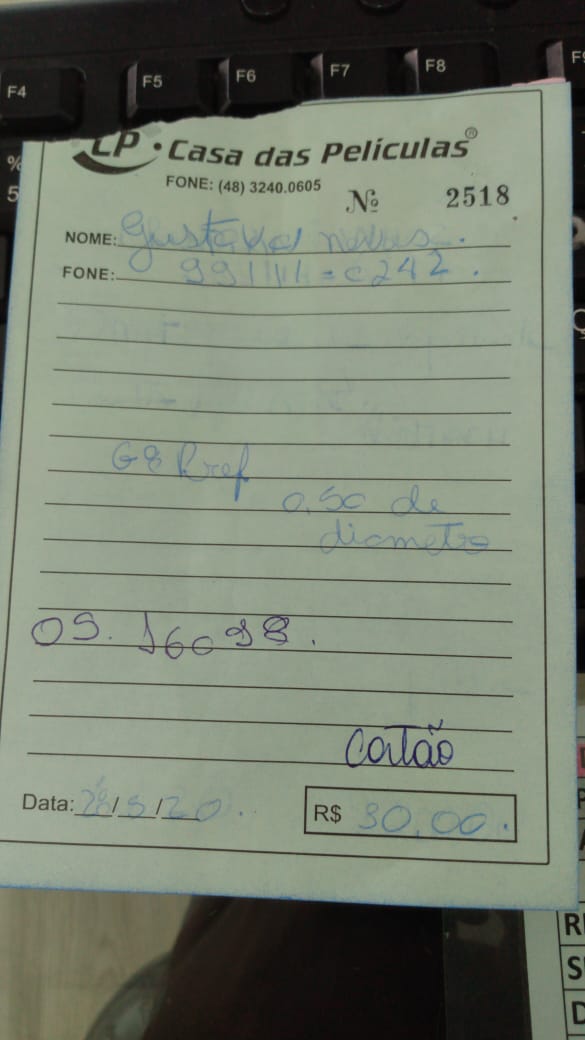 F4 F5 F6 F7 F8
%
5
CP • Casa das Películas®
FONE: (48) 3240.0605
Nº 2518
NOME: Gustavo
FONE:
G8 Rref
0,50 de
diametro
OS. 16098.
Cartão
Data: 28/5/20.
R$ 30,00.